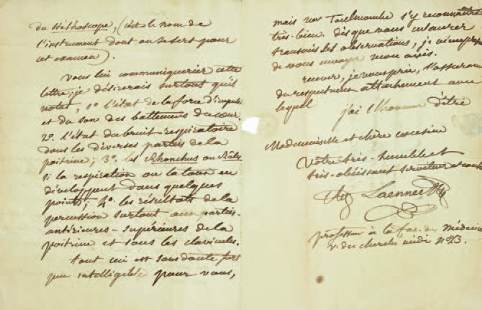 du Stéthoscope, (c'est le nom de
l'instrument dont on se sert pour
cet examen)
Vous lui communiquerez cette
lettre; je désirerais surtout qu'il
notât, 1° l'état de la force d'impuls
et du son des battements du cœur.
2° l'état du bruit respiratoire
dans les diverses parties de la
poitrine; 3° les Rhonchus ou Râles
si la respiration ou la toux en
développent dans quelques
points; 4° les résultats de la
percussion surtout aux parties
antérieures-supérieures de la
poitrine et sous les clavicules.
tout ceci est sans doute fort
peu intelligible pour vous,
mais mr s'y reconnaîtra
très-bien. dès que nous
transmis les observations,
de vous envoyer mon avis.
recevez, je vous prie, l'assurance
du respectueux attachement avec
lequel
j'ai l'honneur d'être
Mademoiselle et chère cousine
Votre très-humble et
très-obéissant serviteur et
Laennec
professeur à la fac. de médecine
r. du cherche midi n°